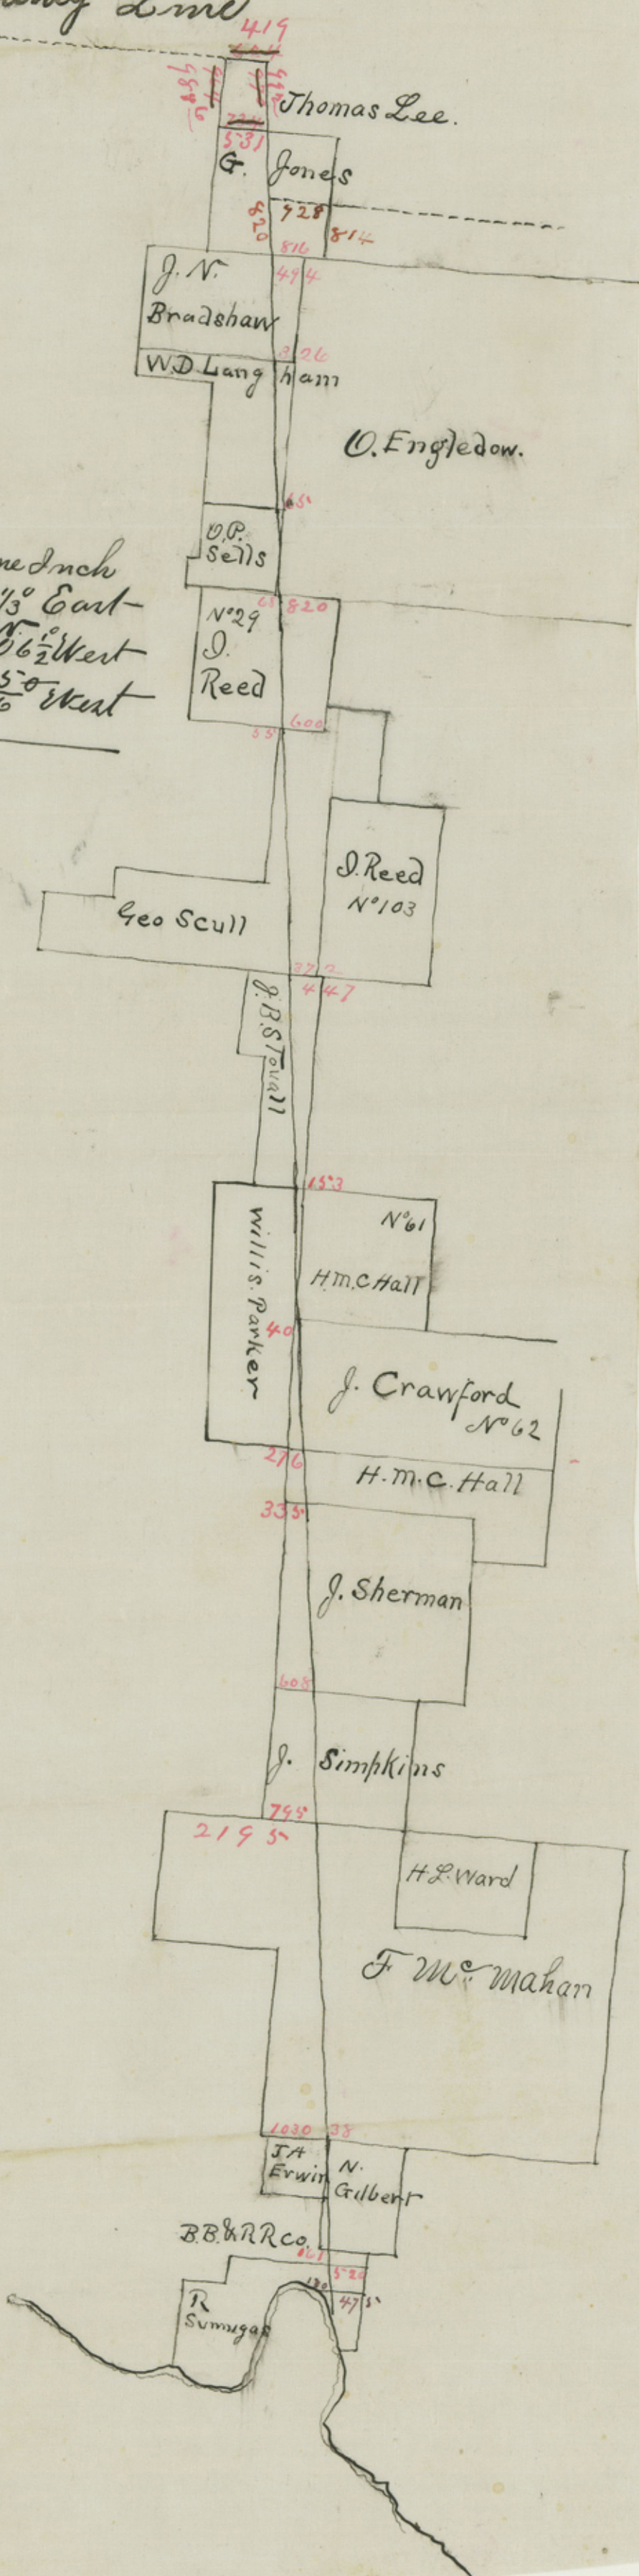 Line
419
531
Thomas Lee.
G. Jones
820
928
814
816
494
J. N.
Bradshaw
326
W.D. Langham
O. Engledow.
65
O.P.
Sells
ne Inch
1/3° East
6 1/2° West
West
65
820
No 29
I.
Reed
55
600
I. Reed
No 103
Geo Scull
372
447
J.B. Stovall
153
No 61
H.M.C Hall
Willis. Parker
40
J. Crawford
No 62
276
H.M.C. Hall
335
J. Sherman
608
J. Simpkins
795
2195
H.L. Ward
F Mc. Mahan
1030
38
J A
Erwin
N.
Gilbert
B.B.&R R Co.
161
520
475
R